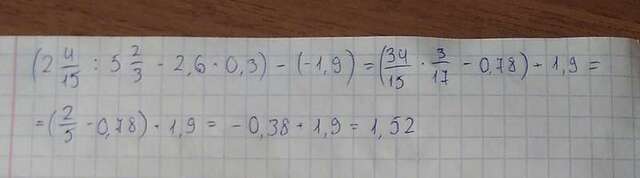 (2 4/15 : 5 2/3 - 2,6 · 0,3) - (-1,9) = (34/15 · 3/17 - 0,78) + 1,9 =
= (2/5 - 0,78) + 1,9 = - 0,38 + 1,9 = 1,52